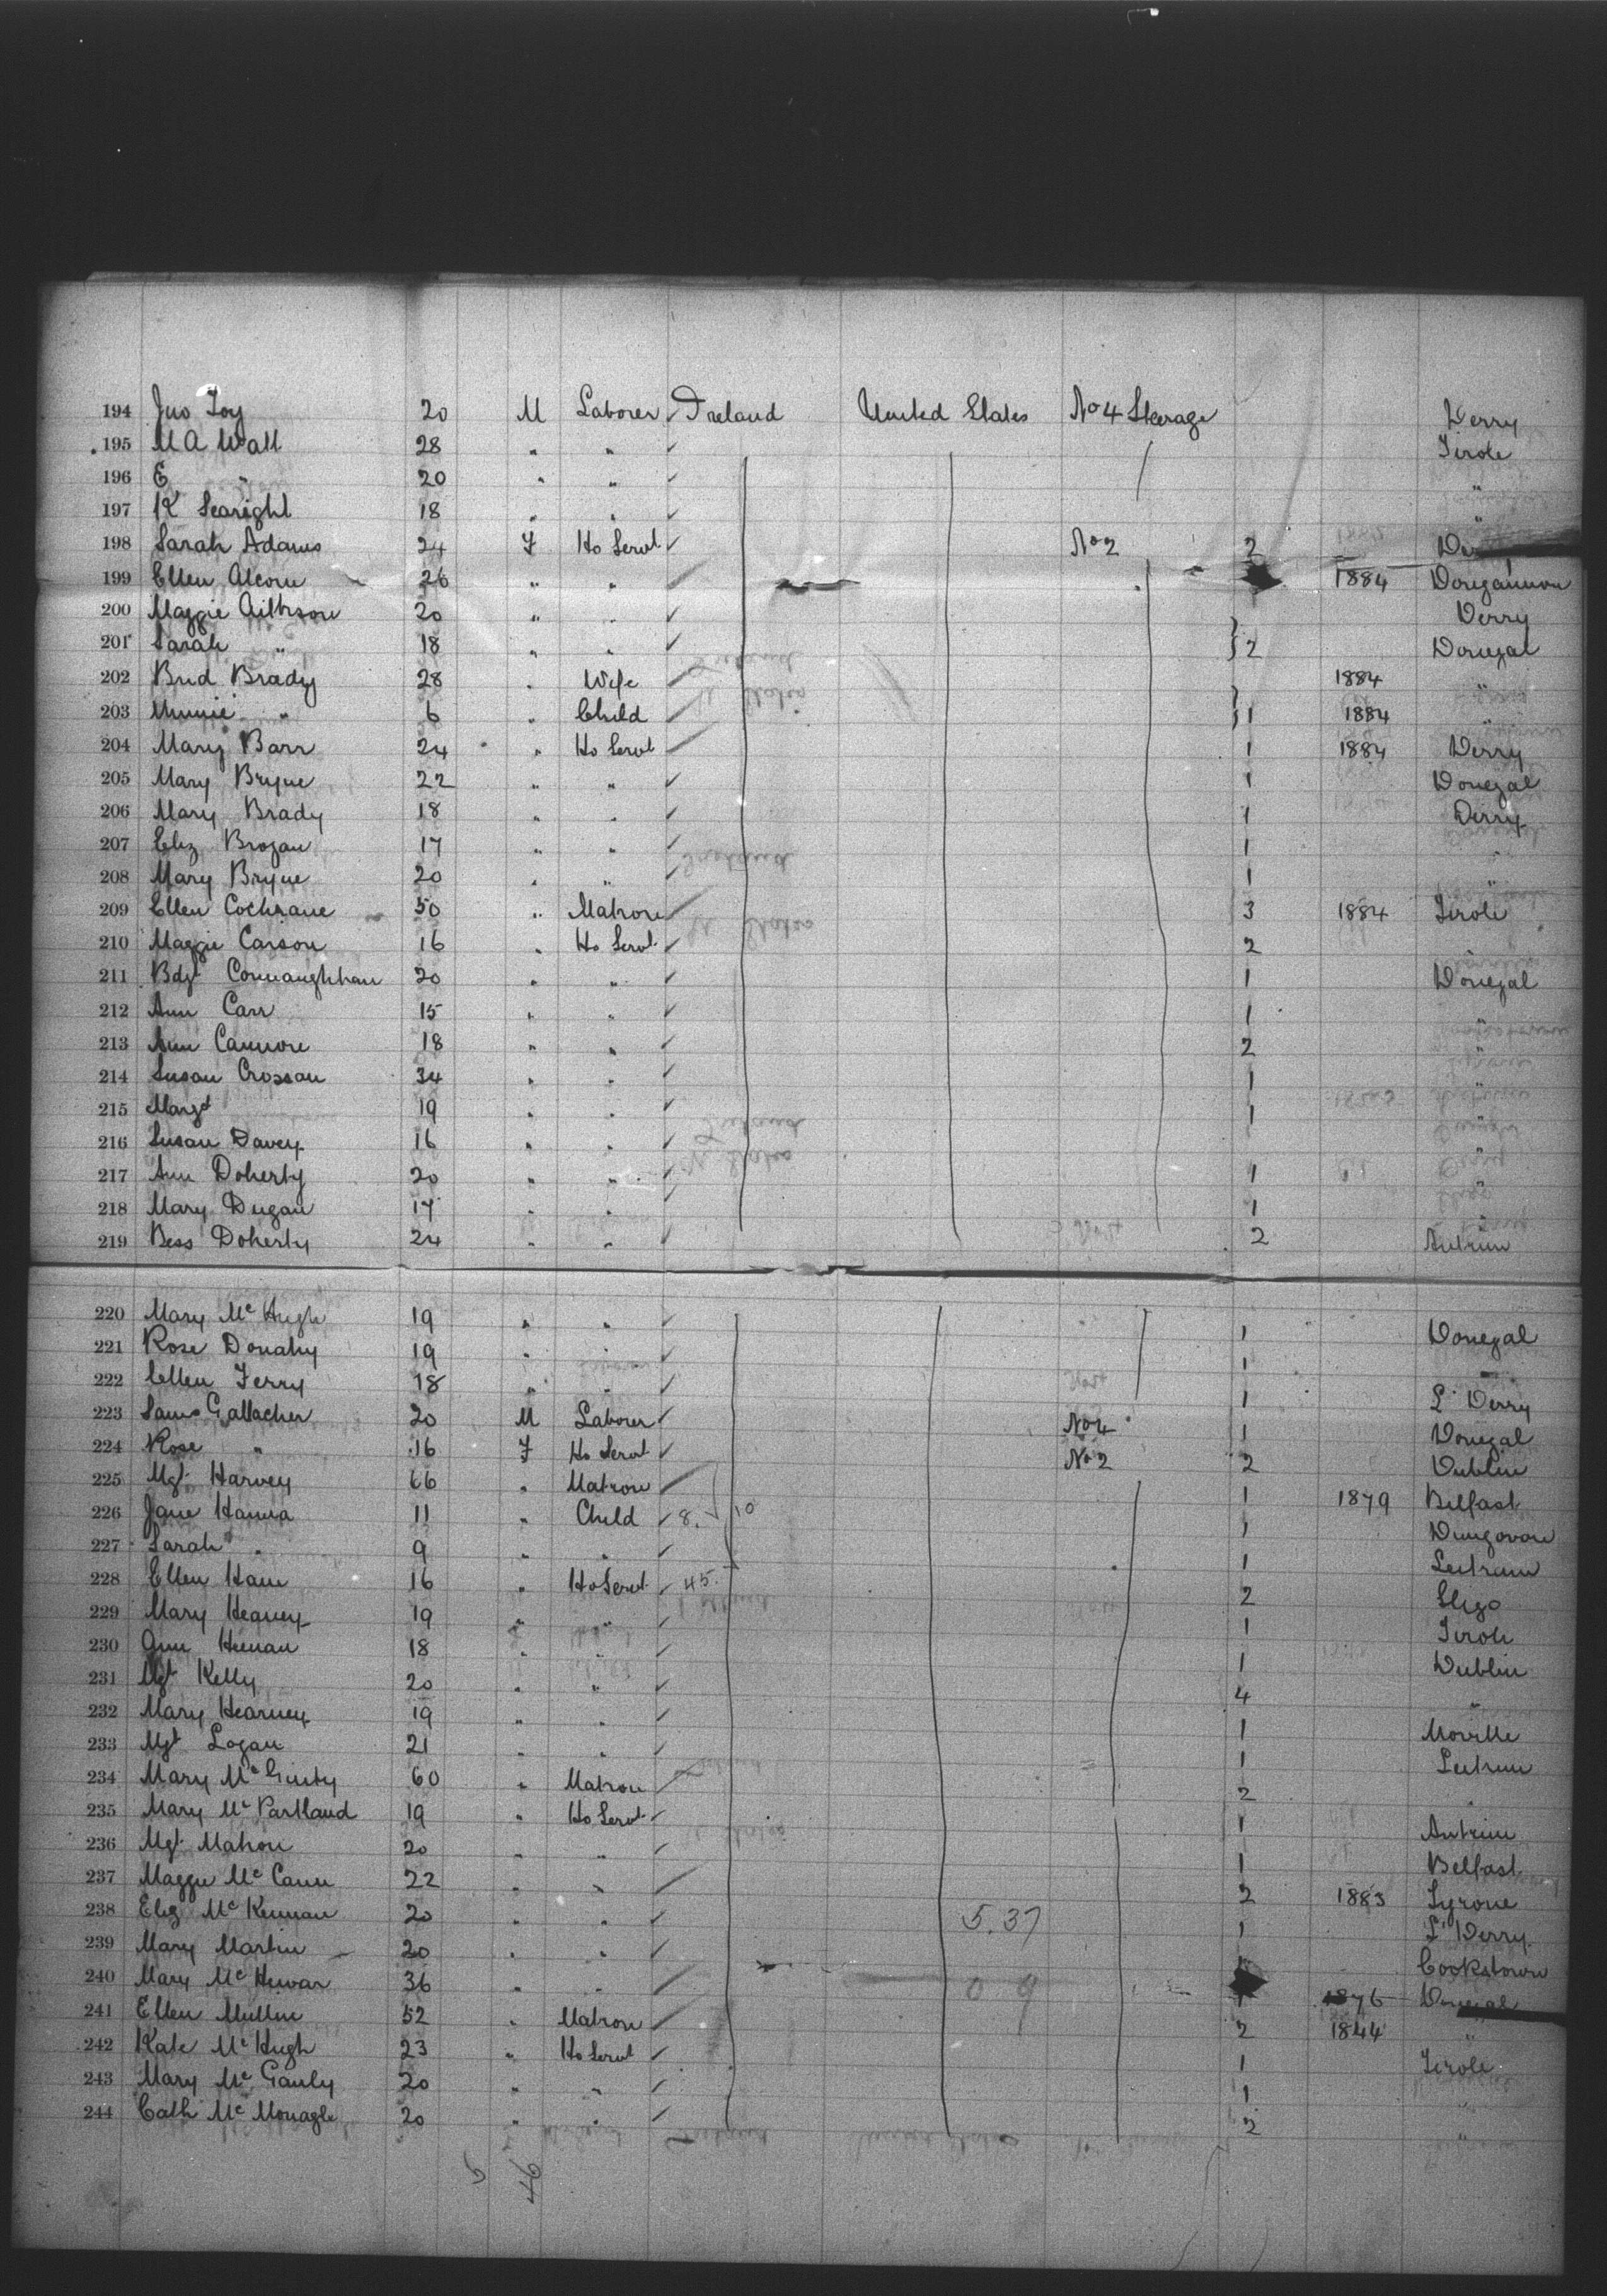 194 Jno Foy 20 M Laborer Ireland United States No 4 Steerage Derry
195 M A Wall 28 " " Tirole
196 E " 20 " " "
197 K Searight 18 " " "
198 Sarah Adams 24 F Ho Servt No 2 2
199 Ellen Alcorn 26 " " 1884 Donegannon
200 Maggie Aitkson 20 " " Derry
201 Sarah " 18 " " 2 Donegal
202 Brid Brady 28 " Wife 1884 "
203 Minnie " 6 " Child 1 1884 "
204 Mary Barr 24 " Ho Servt 1 1884 Derry
205 Mary Bryne 22 " " 1 Donegal
206 Mary Brady 18 " " 1 Derry
207 Eliz Brogan 17 " " 1 "
208 Mary Bryne 20 " " 1 "
209 Ellen Cochrane 50 " Matron 3 1884 Tirole
210 Maggie Carson 16 " Ho Servt 2 "
211 Bdgt Connaughhan 20 " " 1 Donegal
212 Ann Carr 15 " " 1 "
213 Ann Cannon 18 " " 2 "
214 Susan Crossan 34 " " 1 "
215 Margt 19 " " 1
216 Susan Davey 16 " " "
217 Ann Doherty 20 " " 1 "
218 Mary Dugan 17 " " 1 "
219 Bess Doherty 24 " " 2 Antrim
220 Mary Mc Hugh 19 " " 1 Donegal
221 Rose Donahy 19 " " 1 "
222 Ellen Ferry 18 " " 1 L' Derry
223 Saml Gallacher 20 M Laborer No 4 1 Donegal
224 Rose " 16 F Ho Servt No 2 2 Dublin
225 Mgt Harvey 66 " Matron 1 1879 Belfast
226 Jane Hanna 11 " Child 8. 10 1 Dungovan
227 Sarah " 9 " " 1 Leitrim
228 Ellen Ham 16 " Ho Servt 45. 2 Sligo
229 Mary Heaney 19 " " 1 Tirole
230 Ann Heenan 18 " " 1 Dublin
231 Mgt Kelly 20 " " 4 "
232 Mary Kearney 19 " " 1 Moville
233 Mgt Logan 21 " " 1 Leitrim
234 Mary Mc Ginty 60 " Matron 2 "
235 Mary Mc Partland 19 " Ho Servt 1 Antrim
236 Mgt Mahon 20 " " 1 Belfast
237 Maggie Mc Cann 22 " " 2 1883 Tyrone
238 Eliz Mc Kennan 20 " " 5.37 1 L' Derry
239 Mary Martin 20 " " Cookstown
240 Mary Mc 36 " " 0 9 1876 Donegal
241 Ellen Mullin 52 " Matron 2 1844 "
242 Kate Mc Hugh 23 " Ho Servt 1 Tirole
243 Mary Mc Gauly 20 " " 1 "
244 Cath Mc Monagle 20 " " 2 "
5 46